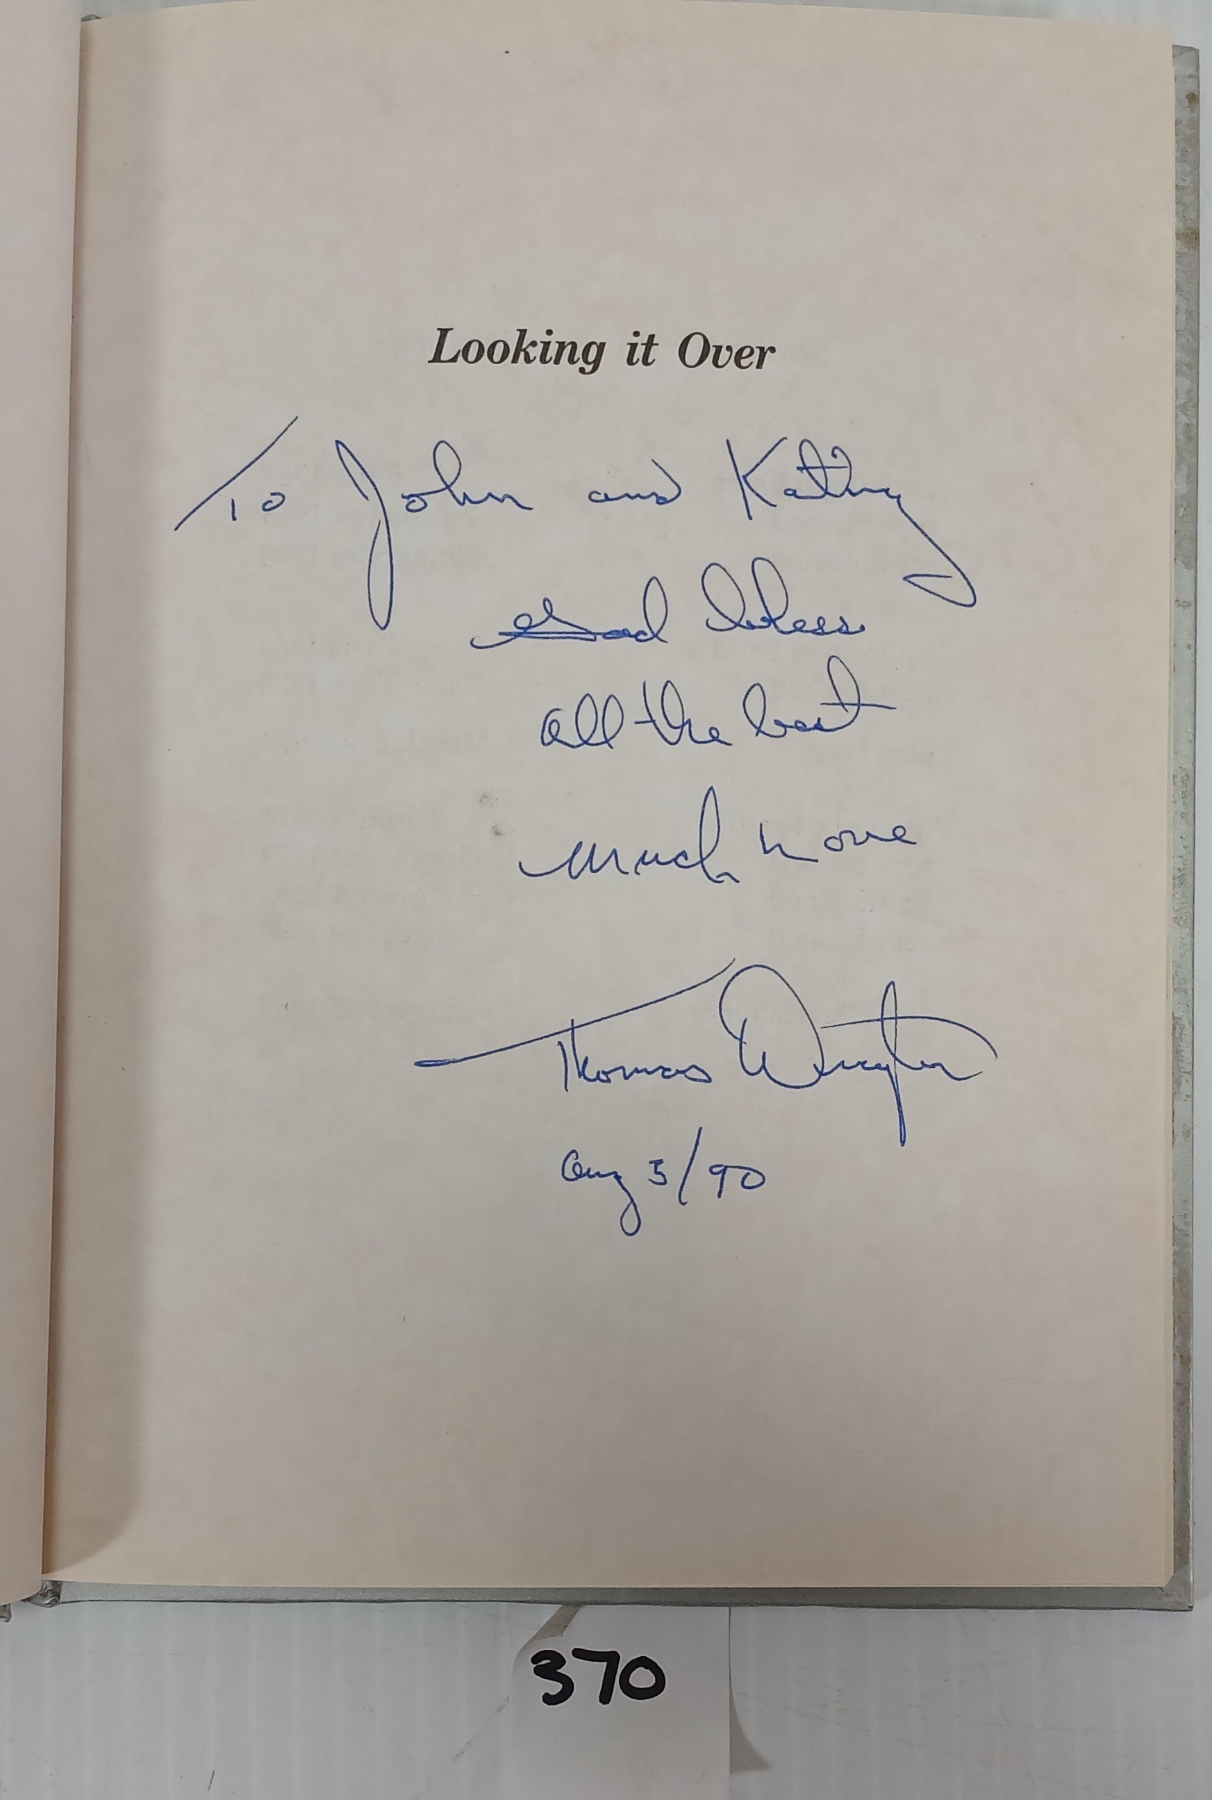 Looking it Over
To John and Kathy
God bless
all the best
much more
Thomas
Aug 3/90
370